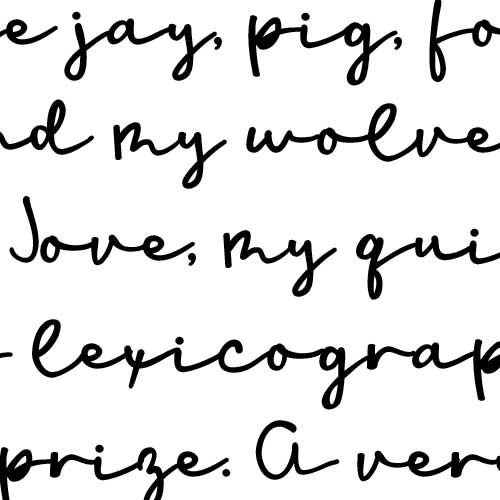 e jay, pig, fo
nd my wolve
Jove, my qui
- lexicograp
prize. A ver